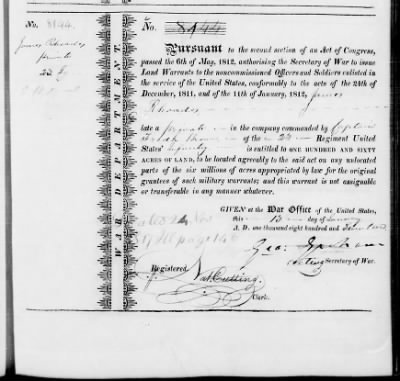 No. 8144
James Rhoades
private
No. 8144
Pursuant to the second section of an Act of Congress,
passed the 6th of May, 1812, authorising the Secretary of War to issue
Land Warrants to the noncommissioned Officers and Soldiers enlisted in
the service of the United States, conformably to the acts of the 24th of
December, 1811, and of the 11th of January, 1812, James
Rhoades
late a private in the company commanded by Captain
of the Regiment United
States' Infantry is entitled to ONE HUNDRED AND SIXTY
ACRES OF LAND, to be located agreeably to the said act on any unlocated
parts of the six millions of acres appropriated by law for the original
grantees of such military warrants; and this warrant is not assignable
or transferable in any manner whatever.
WAR DEPARTMENT.
GIVEN at the War Office of the United States,
this 13 day of January
A. D. one thousand eight hundred and
Geo: Graham
acting Secretary of War.
Registered
Nat Cutting,
Clerk.